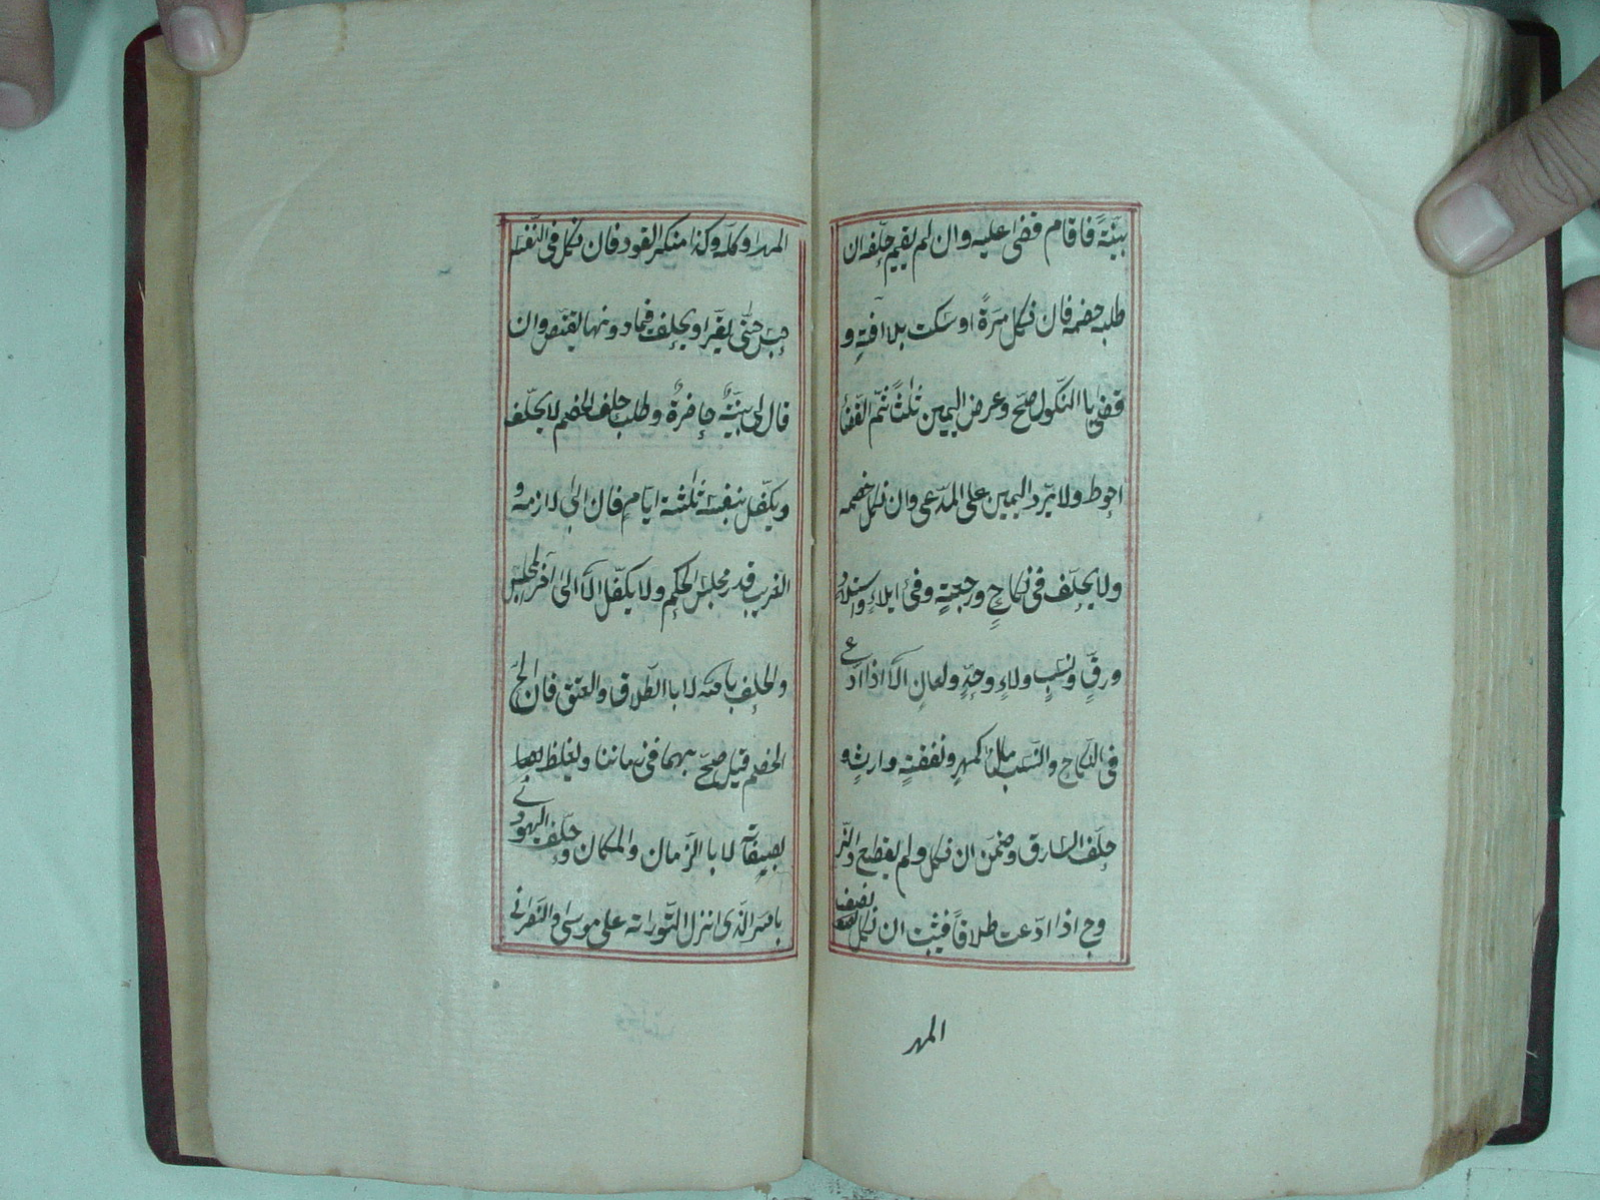 بيّنةً فاقام قضى عليه وان لم يقيم حلّفه ان
طلبه خصمه فان نكل مرةً او سكت بلا افةٍ و
قضى باالنكول صحّ وعرض اليمين ثلثاً ثم القضأ
احوط ولا يردّ اليمين على المدّعى وان نكل خصمه
ولا يحلّف فى نكاحٍ ورجعةٍ وفئ ايلاءٍ واستيلاد
ورقٍّ ونسبٍ وولاءٍ وحدٍّ ولعانٍ الّا اذا ادّعى
فى النكاح والنسب مالاً كمهرٍ ونفقةٍ وارثٍه
حلّف السارق وضمن ان نكل ولم يقطع والزّ
وج اذا ادّعت طلاقاً فيثبت ان نكل نصف
المهر
المهر او كلّه وكذا منكر القود فان نكل فى النّفس
حبس حتّى يقرّ او يحلف فيما دونها يقتص وان
قال لى بيّنةٌ حاضرةٌ وطلب حلف الخصم لا يحلّف
ويكفّل بنفسه ثلثة ايّامٍ فان ابى لازمه و
الغريب قدر مجلس الحكم ولا يكفّل الّا الى آخر المجلس
والحلف باالله لا باالطّلاق والعتق فان الحّ
الخصم قيل صحّ بهما فى زماننا ويغلظ
بصفاته لا باالزّمان والمكان وحلّف اليهودى
باالله الّذى انزل التّوراته على موسى والنّصرانى